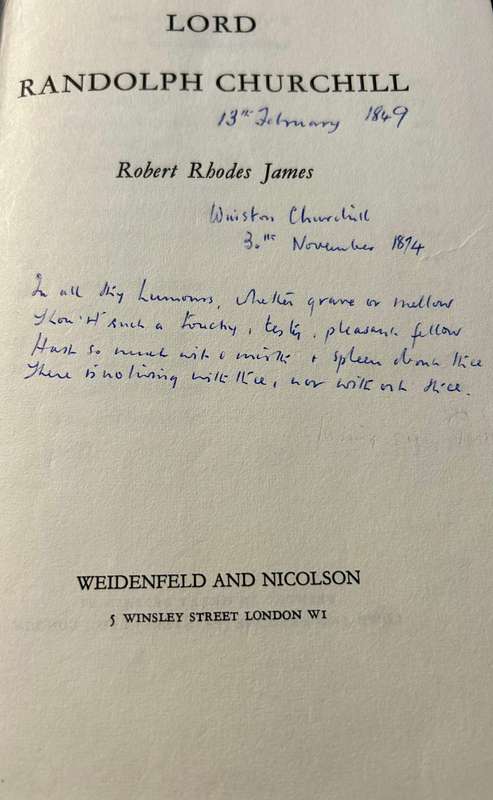 LORD
RANDOLPH CHURCHILL
13th February 1849
Robert Rhodes James
Winston Churchill
30th November 1874
In all thy humours, whether grave or mellow
Thou'rt such a touchy, testy, pleasant fellow
Hast so much wit & mirth & spleen about thee
There is no living with thee, nor without thee.
WEIDENFELD AND NICOLSON
5 WINSLEY STREET LONDON W1